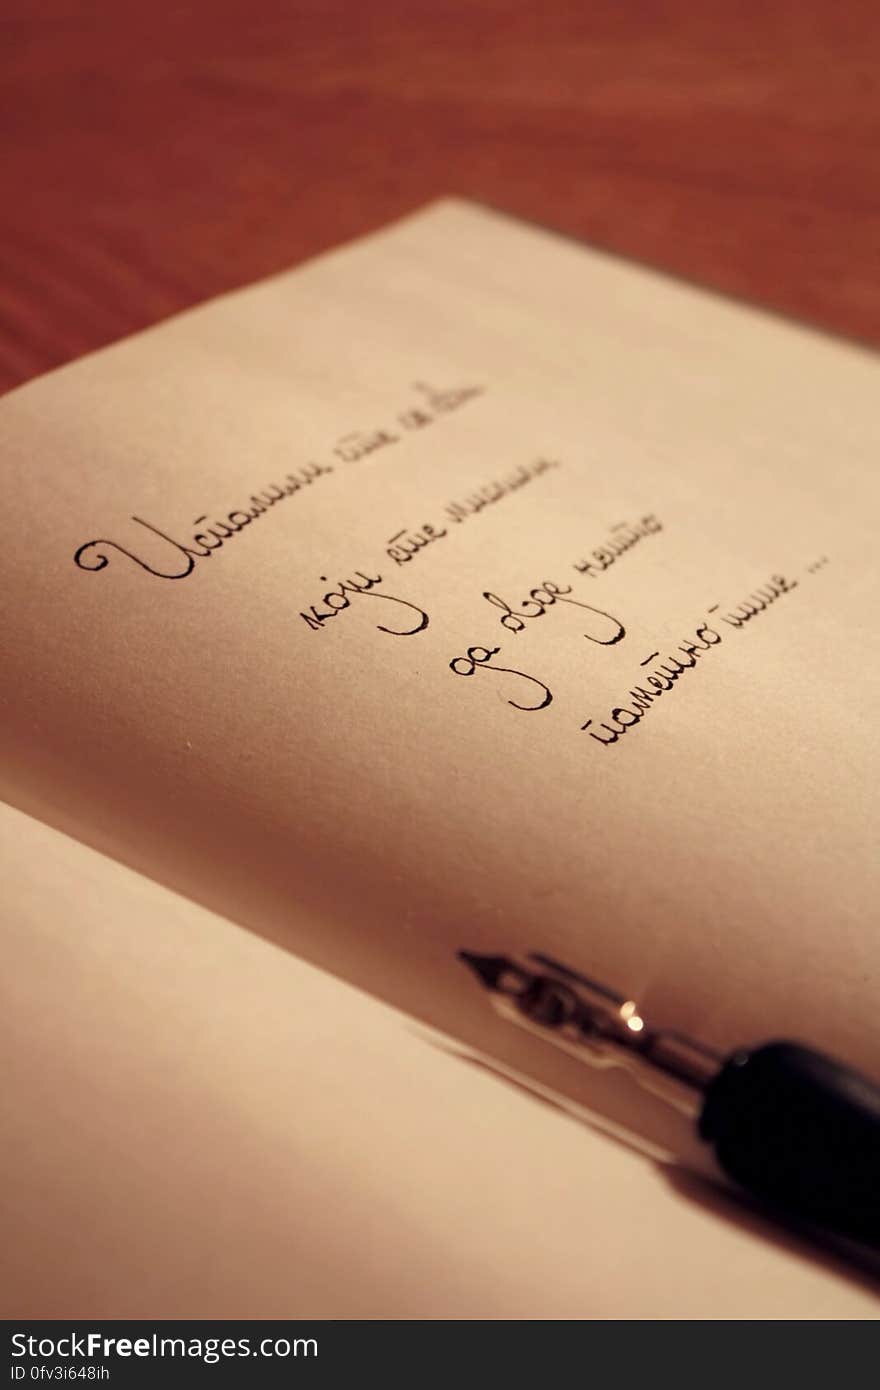 Испалили сте се сви
који сте мислили
да овде нешто
паметно пише ...
StockFreeImages.com
ID 0fv3i648ih